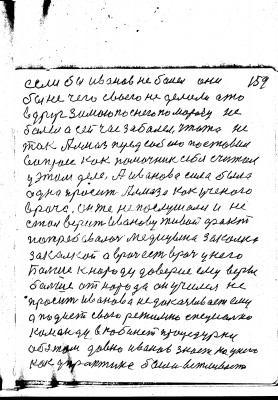 159
если бы Иванов не болел они
бы не чего своего не делали а то
вдруг зимою по снегу по морозу не
болел а сейчас заболел, что то не
так Алмаз пред собою поставил
вопрос как помощник себя считал
в этом деле. А Иванова сила была
одна просит Алмаза как ученого
врача. Он же не послушал и не
стал верить Иванову живой факт
потребовался медицина законна
закалкой а врач есть врач у него
больше к народу доверие ему веры
больше от народа он учился не
просит Иванова не доказывает ему
а подает свою специально
команду в кабинет процедурки
об этом давно Иванов знает по у него
как практике были встлевать